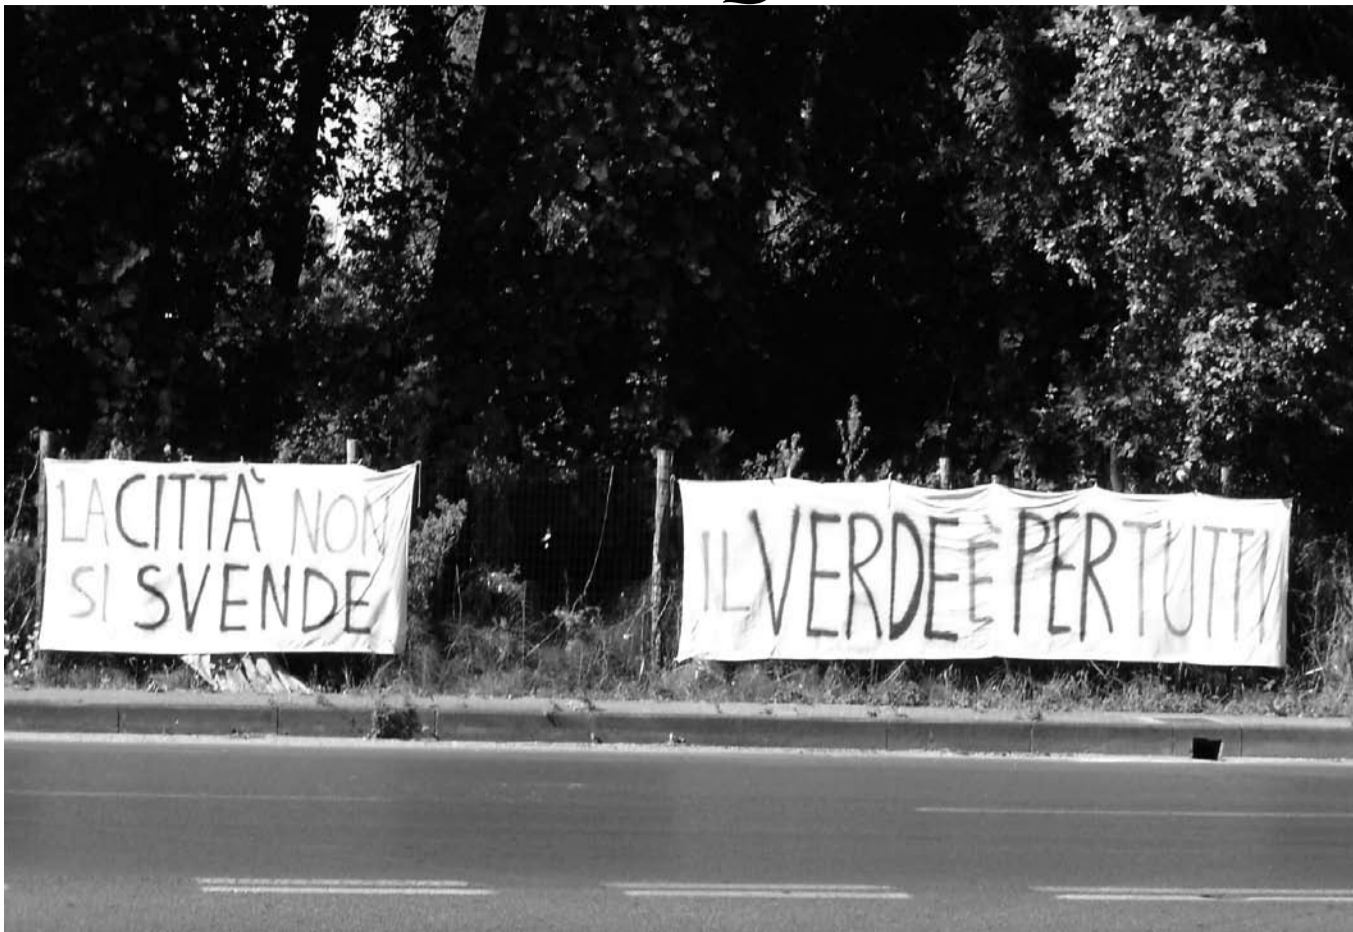 LA CITTÀ NON
SI SVENDE
IL VERDE È PER TUTTI